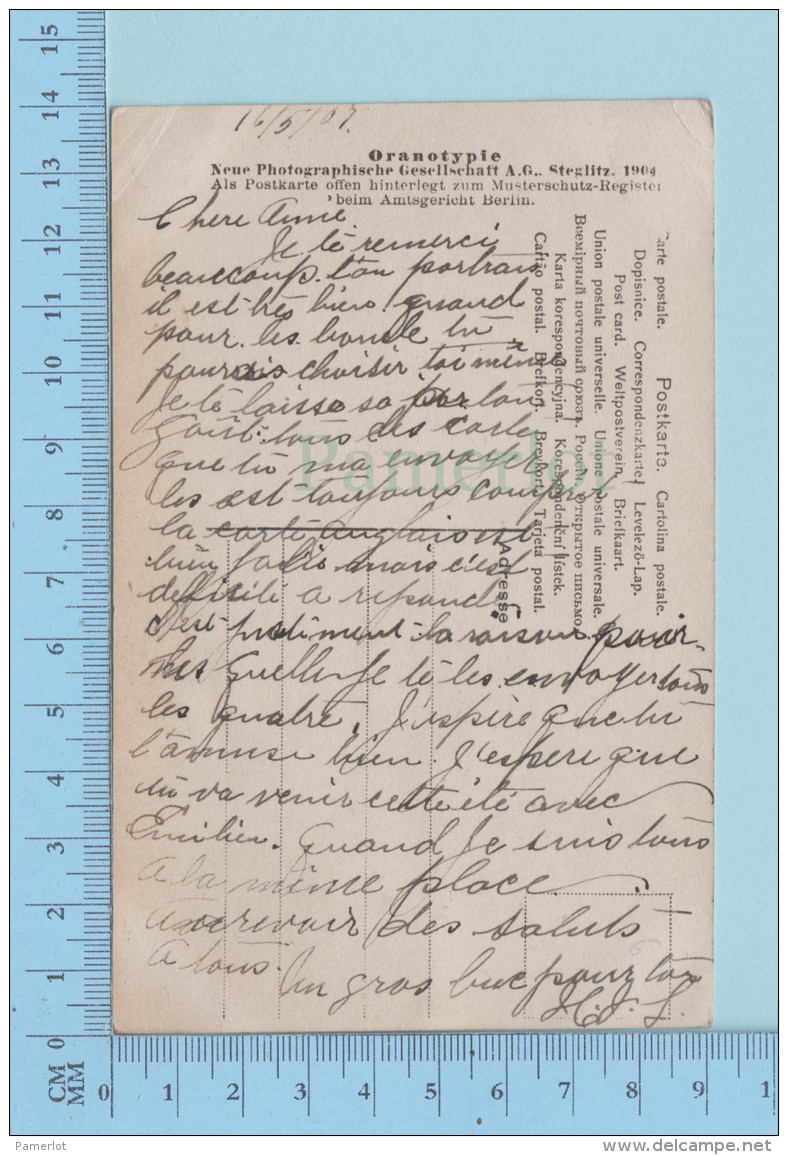 16/5/07.
Oranotypie
Neue Photographische Gesellschaft A.G., Steglitz. 1904
Als Postkarte offen hinterlegt zum Musterschutz-Register
beim Amtsgericht Berlin.
Chere
Je te remerci
beaucoup. ton portrais
il est très bien. quand
pour. les tu
pourais choisir toi même
Je te laisse sa par ton
gout. tous des carte
que tu ma envoyer
les est toujours
la carte anglais est
bien mais c'est
a repond
C'est la raison pour
Je te les envoyer tous
les quatre. J'espère que tu
t'amuse bien. J'espere que
tu va venir cette été avec
Emilien. Quand Je suis tous
a la même place.
Aurevoir des saluts
a tous.
Un gros pour toi
Carte postale. Postkarte. Cartolina postale.
Dopisnice. Correspondenzkarte. Levelező-Lap.
Post card. Weltpostverein. Briefkaart.
Union postale universelle. Unione postale universale.
Всемірный почтовый союзъ. Россія. Открытое письмо.
Karta korespondencyjna. Korespondenční lístek.
Cartão postal. Brefkort. Brevkort. Tarjeta postal.
Adresse
Pamerlot
CM
MM
0
1
2
3
4
5
6
7
8
9
10
11
12
13
14
15
0 1 2 3 4 5 6 7 8 9 1
Pamerlot
©www.delcampe.net